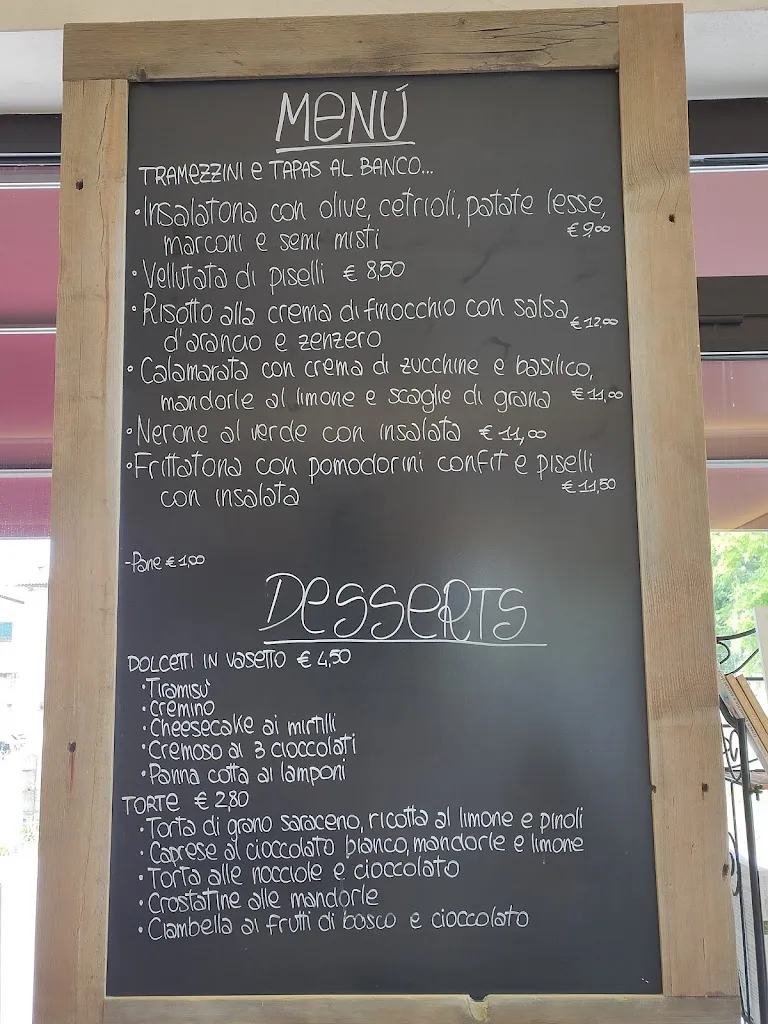 MENÚ
TRAMEZZINI e TAPAS AL BANCO...
•Insalatona con olive, cetrioli, patate lesse,
marconi e semi misti € 9,00
•Vellutata di piselli € 8,50
•Risotto alla crema di finocchio con salsa
d'arancio e zenzero € 12,00
•Calamarata con crema di zucchine e basilico,
mandorle al limone e scaglie di grana € 11,00
•Nerone al verde con insalata € 11,00
•Frittatona con pomodorini confit e piselli
con insalata € 11,50
-Pane € 1,00
DESSERTS
DOLCETTI IN VASETTO € 4,50
•Tiramisù
•cremino
•Cheesecake ai mirtilli
•Cremoso ai 3 cioccolati
•Panna cotta ai lamponi
TORTE € 2,80
•Torta di grano saraceno, ricotta al limone e pinoli
•Caprese al cioccolato bianco, mandorle e limone
•Torta alle nocciole e cioccolato
•Crostatine alle mandorle
•Ciambella ai frutti di bosco e cioccolato